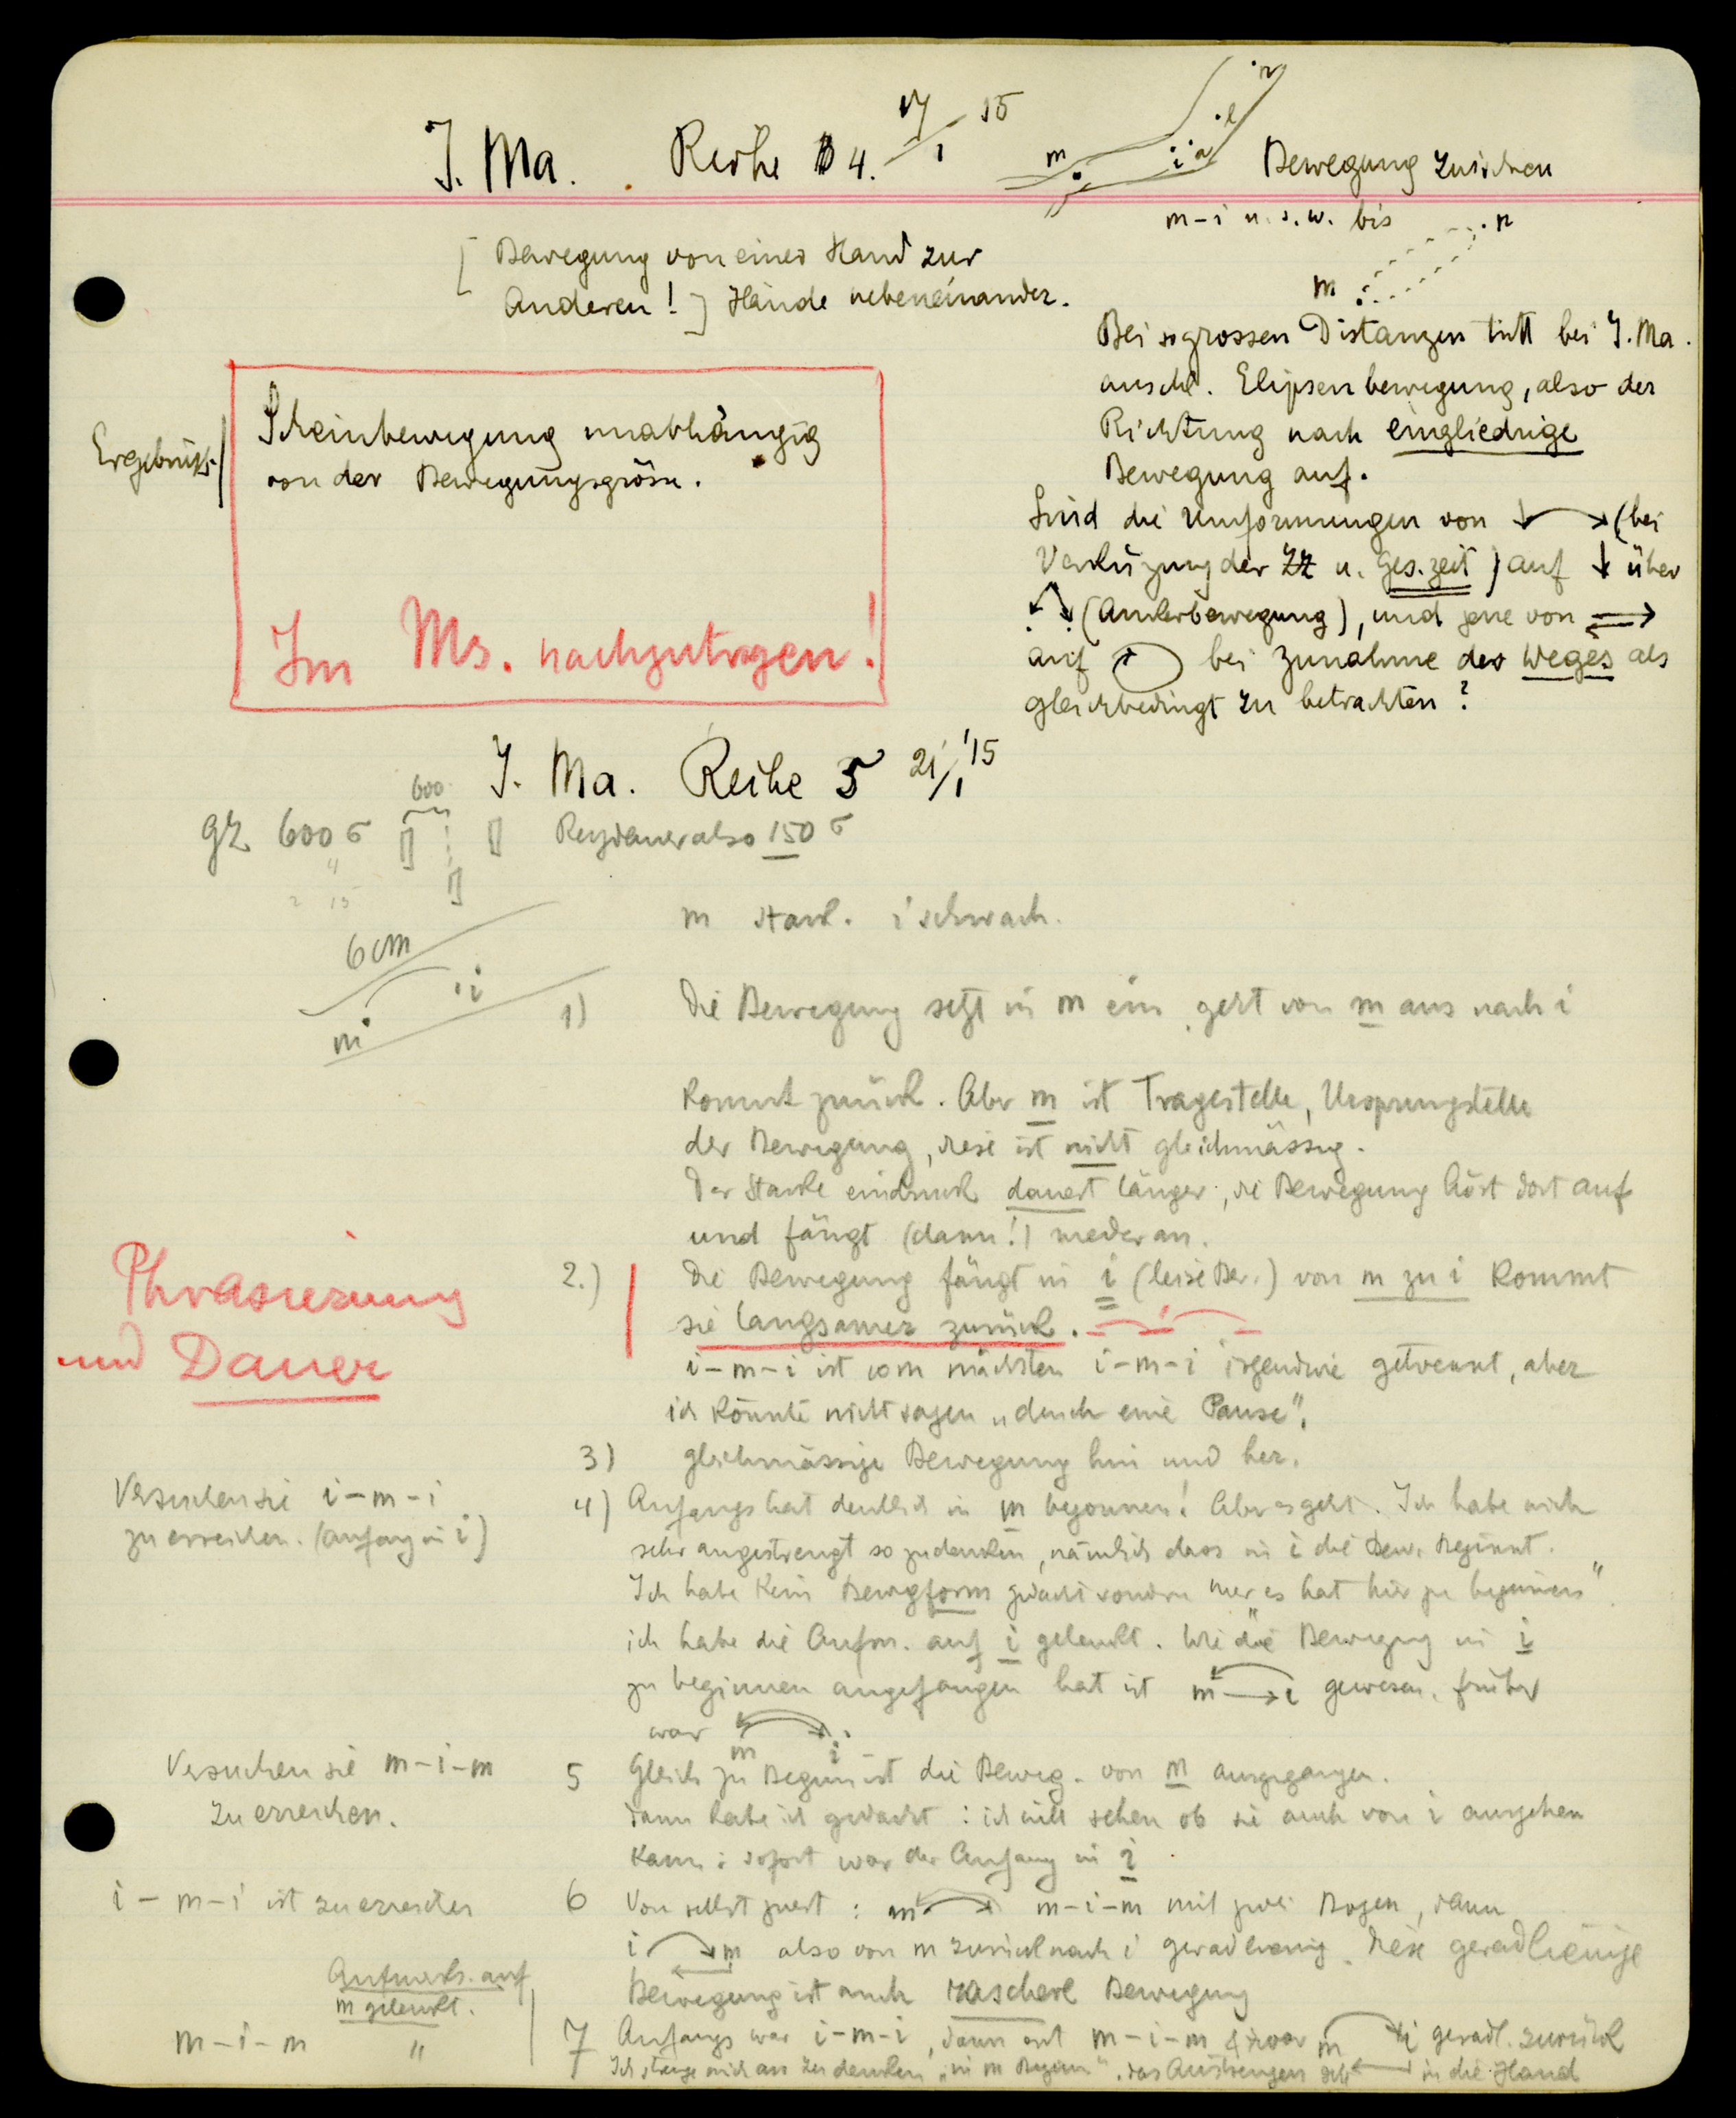 J. Ma. Reihe 4. 17/1 15
m i a l r
Bewegung zwischen
m–i u. s. w. bis r
m
[ Bewegung von einer Hand zur
Anderen! ] Hände nebeneinander.
Bei so grossen Distanzen tritt bei J. Ma.
auschl. Elipsenbewegung, also der
Richtung nach eingliedrige
Bewegung auf.
Sind die Umformungen von (bei
Verkürzung der ZZ u. Ges.zeit) auf ↓ über
(Ankerbewegung), und jene von
auf bei Zunahme des Weges als
gleichbedingt zu betrachten?
Ergebnis
Scheinbewegung unabhängig
von der Bewegungsgrösse.
Im Ms. nachzutragen!
J. Ma. Reihe 5 21/1 '15
600
gZ 600 σ Reizdauer also 150 σ
m stark. i schwach.
6 cm
i
m
1) Die Bewegung setzt in m ein geht von m aus nach i
kommt zurück. Aber m ist Tragestelle, Ursprungstelle
der Bewegung, diese ist nicht gleichmässig.
Der starke eindruck dauert länger, die Bewegung hört dort auf
und fängt (dann!) wieder an.
Phrasierung
und Dauer
2.) Die Bewegung fängt in i (leise Ber.) von m zu i kommt
sie langsamer zurück.
i–m–i ist vom nächsten i–m–i irgendwie getrennt, aber
ich könnte nicht sagen „durch eine Pause".
3) gleichmässige Bewegung hin und her.
Versuchen sie i–m–i
zu erreichen. (Anfang in i)
4) Anfangs hat deutlich in m begonnen! Aber es geht. Ich habe mich
sehr angestrengt so zu denken, nämlich dass in i die Bew. beginnt.
Ich habe kein Bewegform gedacht sondern nur „es hat hier zu beginnen"
ich habe die Aufm. auf i gelenkt. Wie die Bewegung in i
zu beginnen angefangen hat ist m → i gewesen, früher
war m i.
Versuchen sie m–i–m
zu erreichen.
5 Gleich zu Beginn ist die Beweg. von m ausgegangen.
Dann habe ich gedacht: ich will sehen ob sie auch von i ausgehen
kann: sofort war der Anfang in i
i – m–i ist zu erreichen
6 Von selbst zuerst: m m–i–m mit zwei Bogen, dann
i m also von m zurück nach i geradlienig. Diese geradlienige
Bewegung ist auch raschere Bewegung
Aufmerks. auf
m gelenkt.
m–i–m "
7 Anfangs war i–m–i, dann erst m–i–m & zwar m i geradl. zurück
Ich strenge mich an zu denken „in m Beginn", das Anstrengen in die Hand